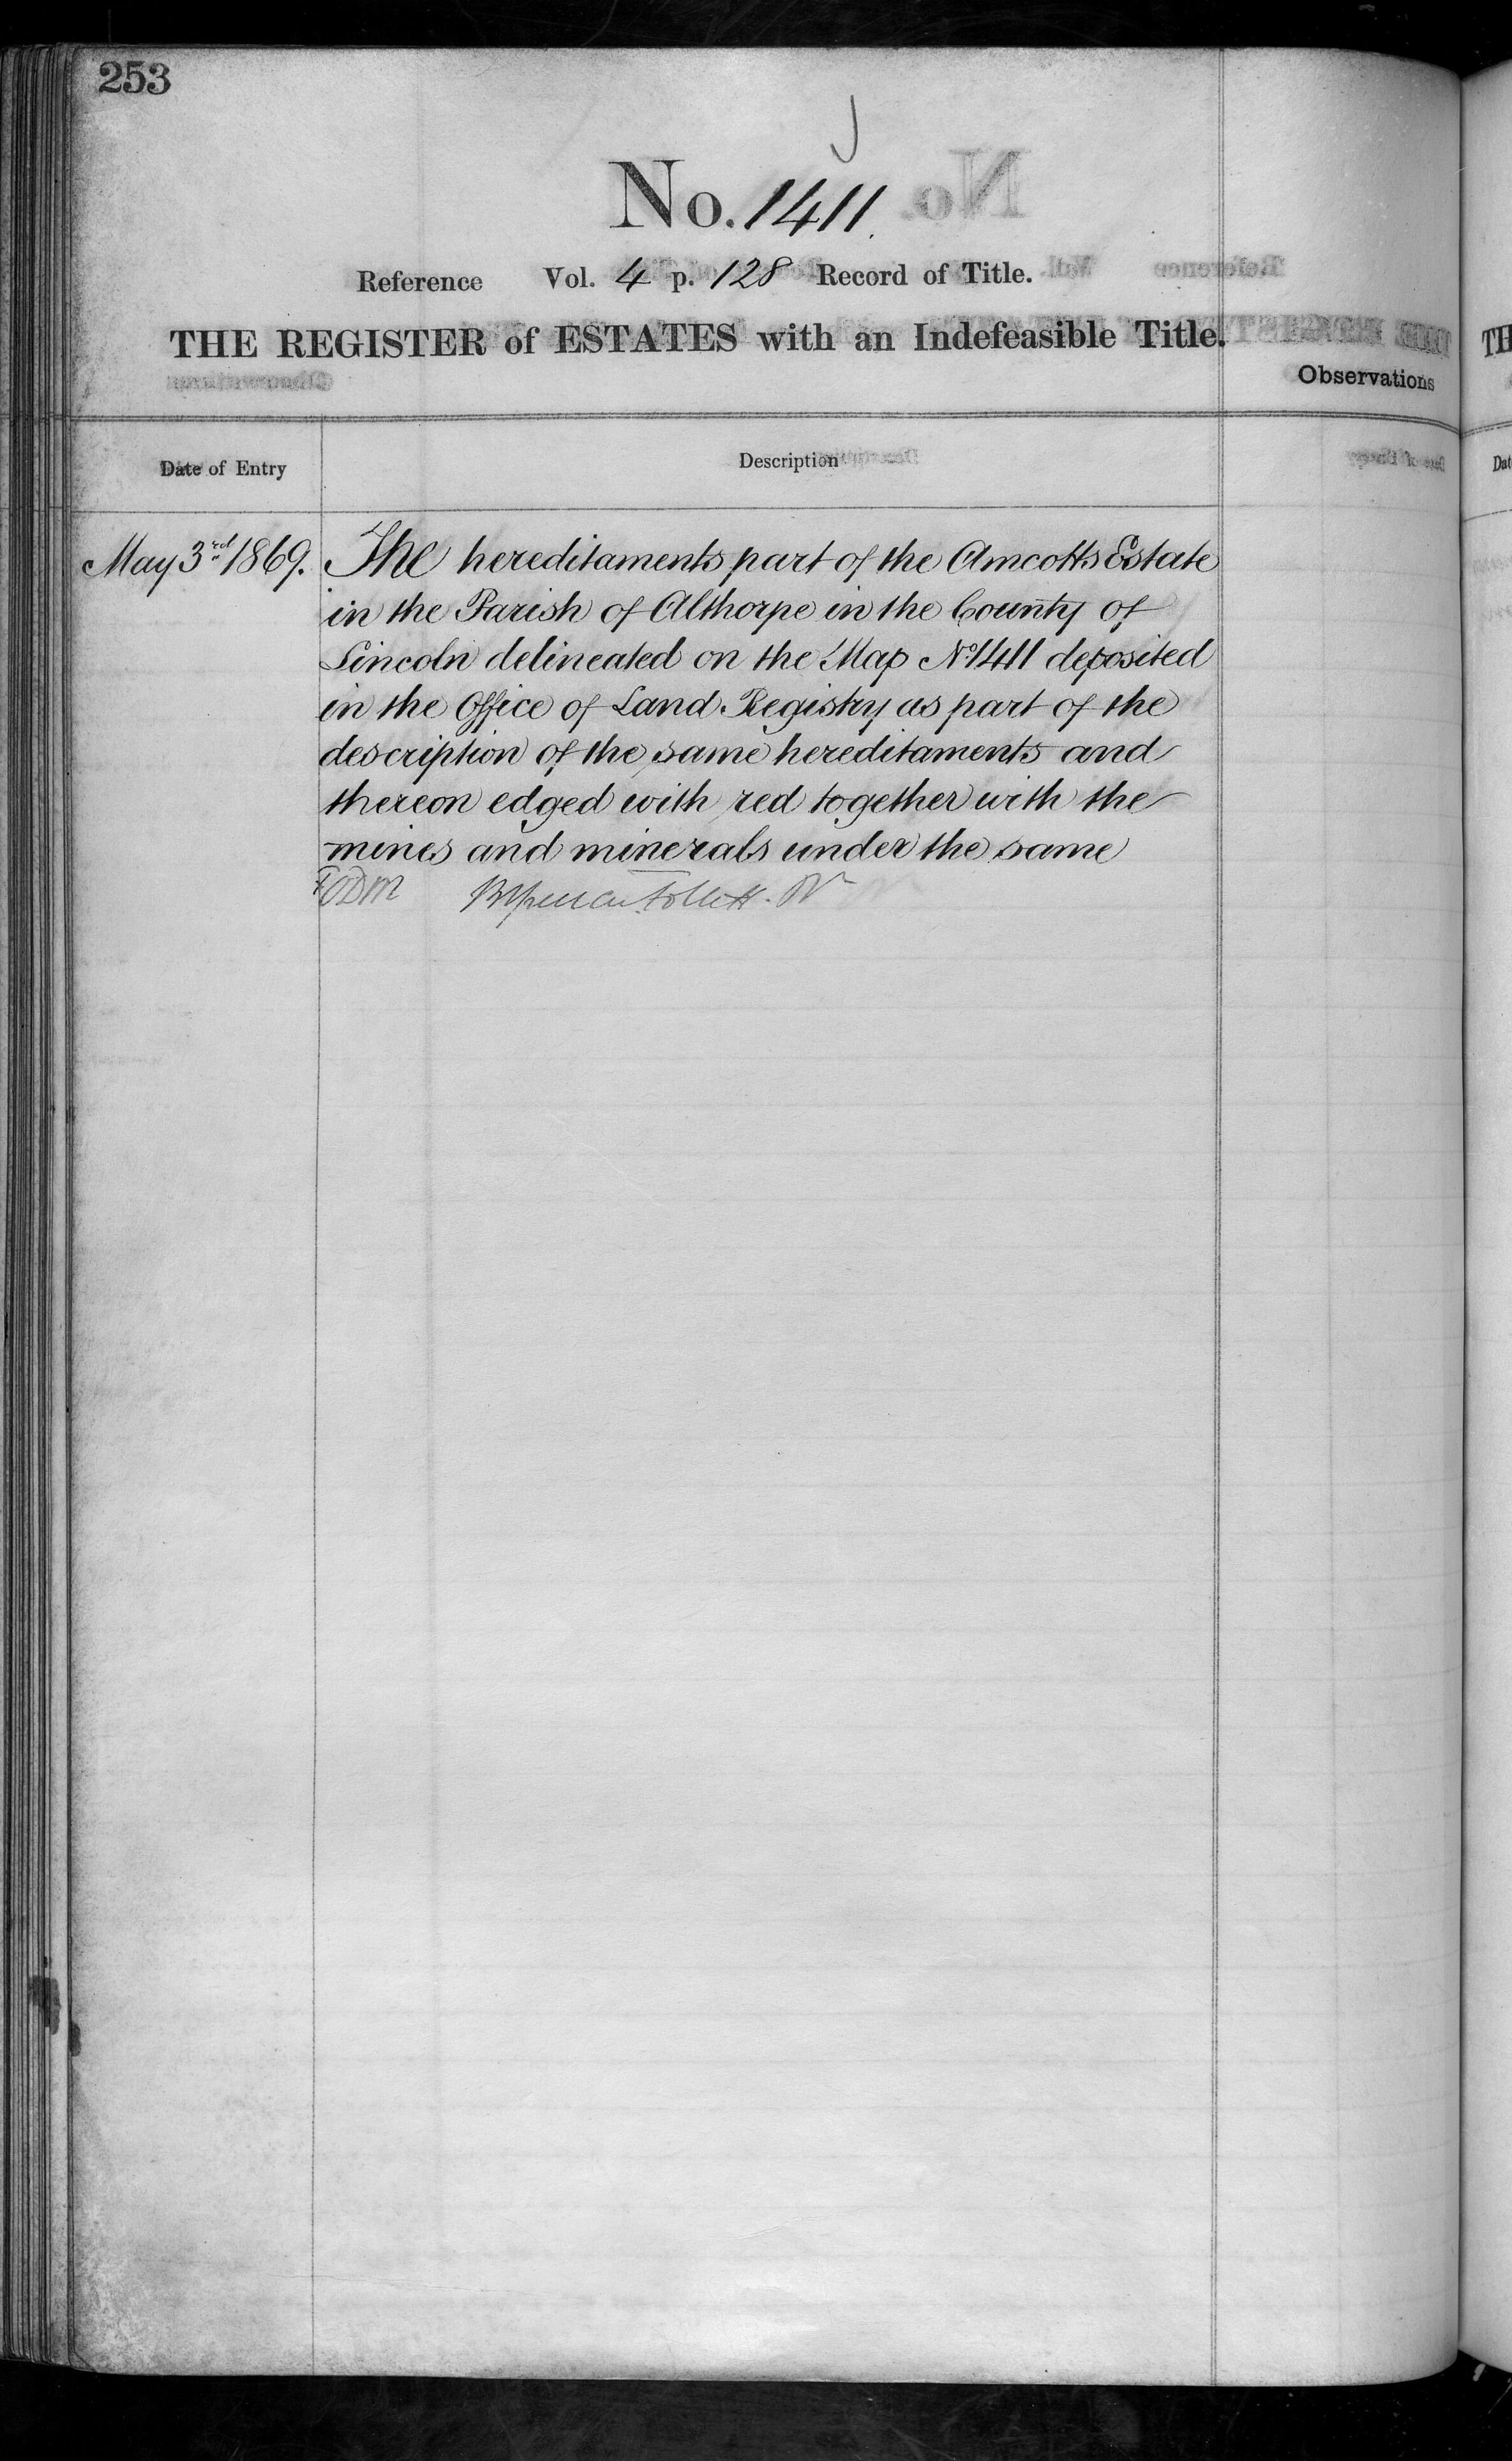 253
No. 1411.
Reference Vol. 4 p. 128 Record of Title.
THE REGISTER of ESTATES with an Indefeasible Title.
Observations
Date of Entry
Description
May 3rd 1869.
The hereditaments part of the Amcotts Estate
in the Parish of Althorpe in the County of
Lincoln delineated on the Map No. 1411 deposited
in the Office of Land Registry as part of the
description of the same hereditaments and
thereon edged with red together with the
mines and minerals under the same
Follett.